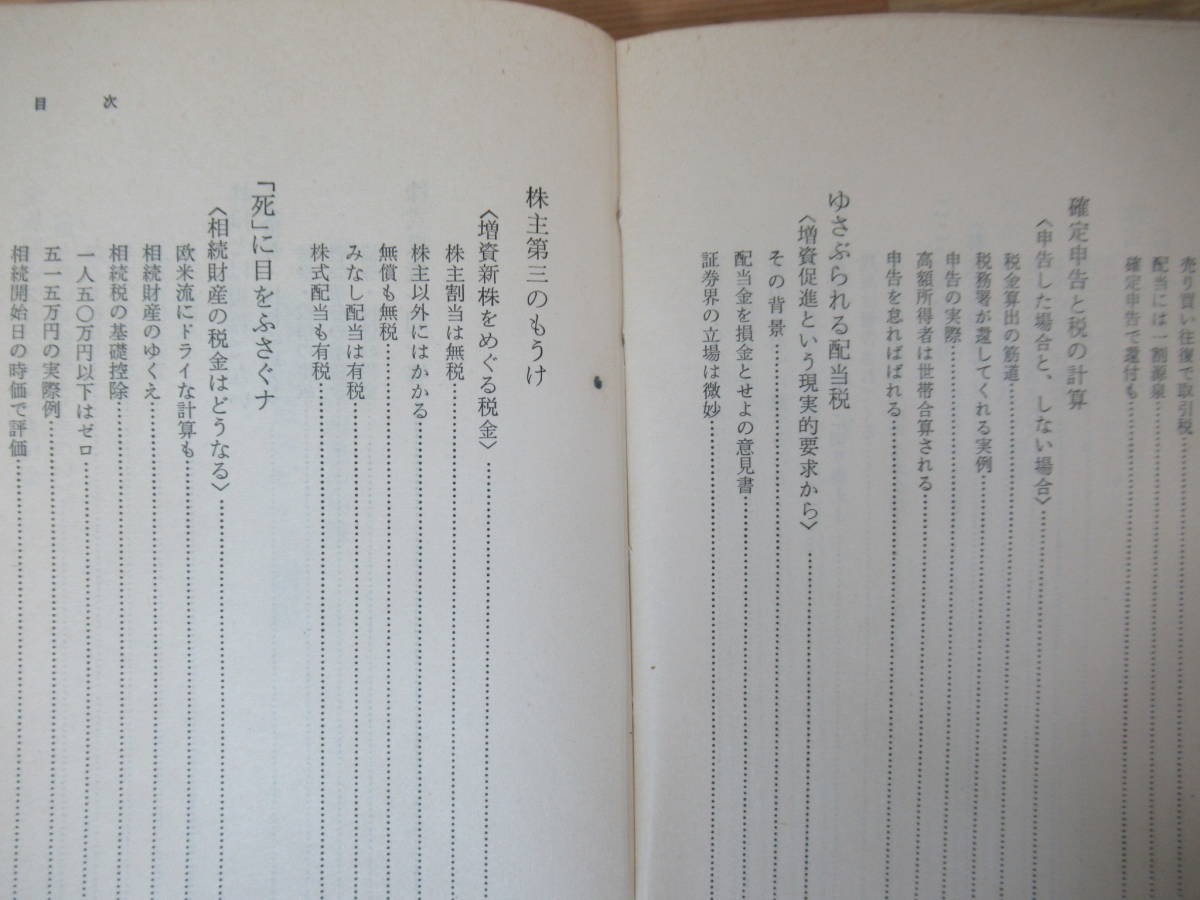 売り買い往復で取引税
配当には一割源泉
確定申告で還付も
確定申告と税の計算
〈申告した場合と、しない場合〉
税金算出の筋道
税務署が還してくれる実例
申告の実際
高額所得者は世帯合算される
申告を怠ればばれる
ゆさぶられる配当税
〈増資促進という現実的要求から〉
その背景
配当金を損金とせよの意見書
証券界の立場は微妙
目次
株主第三のもうけ
〈増資新株をめぐる税金〉
株主割当は無税
株主以外にはかかる
無償も無税
みなし配当は有税
株式配当も有税
「死」に目をふさぐナ
〈相続財産の税金はどうなる〉
欧米流にドライな計算も
相続財産のゆくえ
相続税の基礎控除
一人五〇万円以下はゼロ
五一五万円の実際例
相続開始日の時価で評価